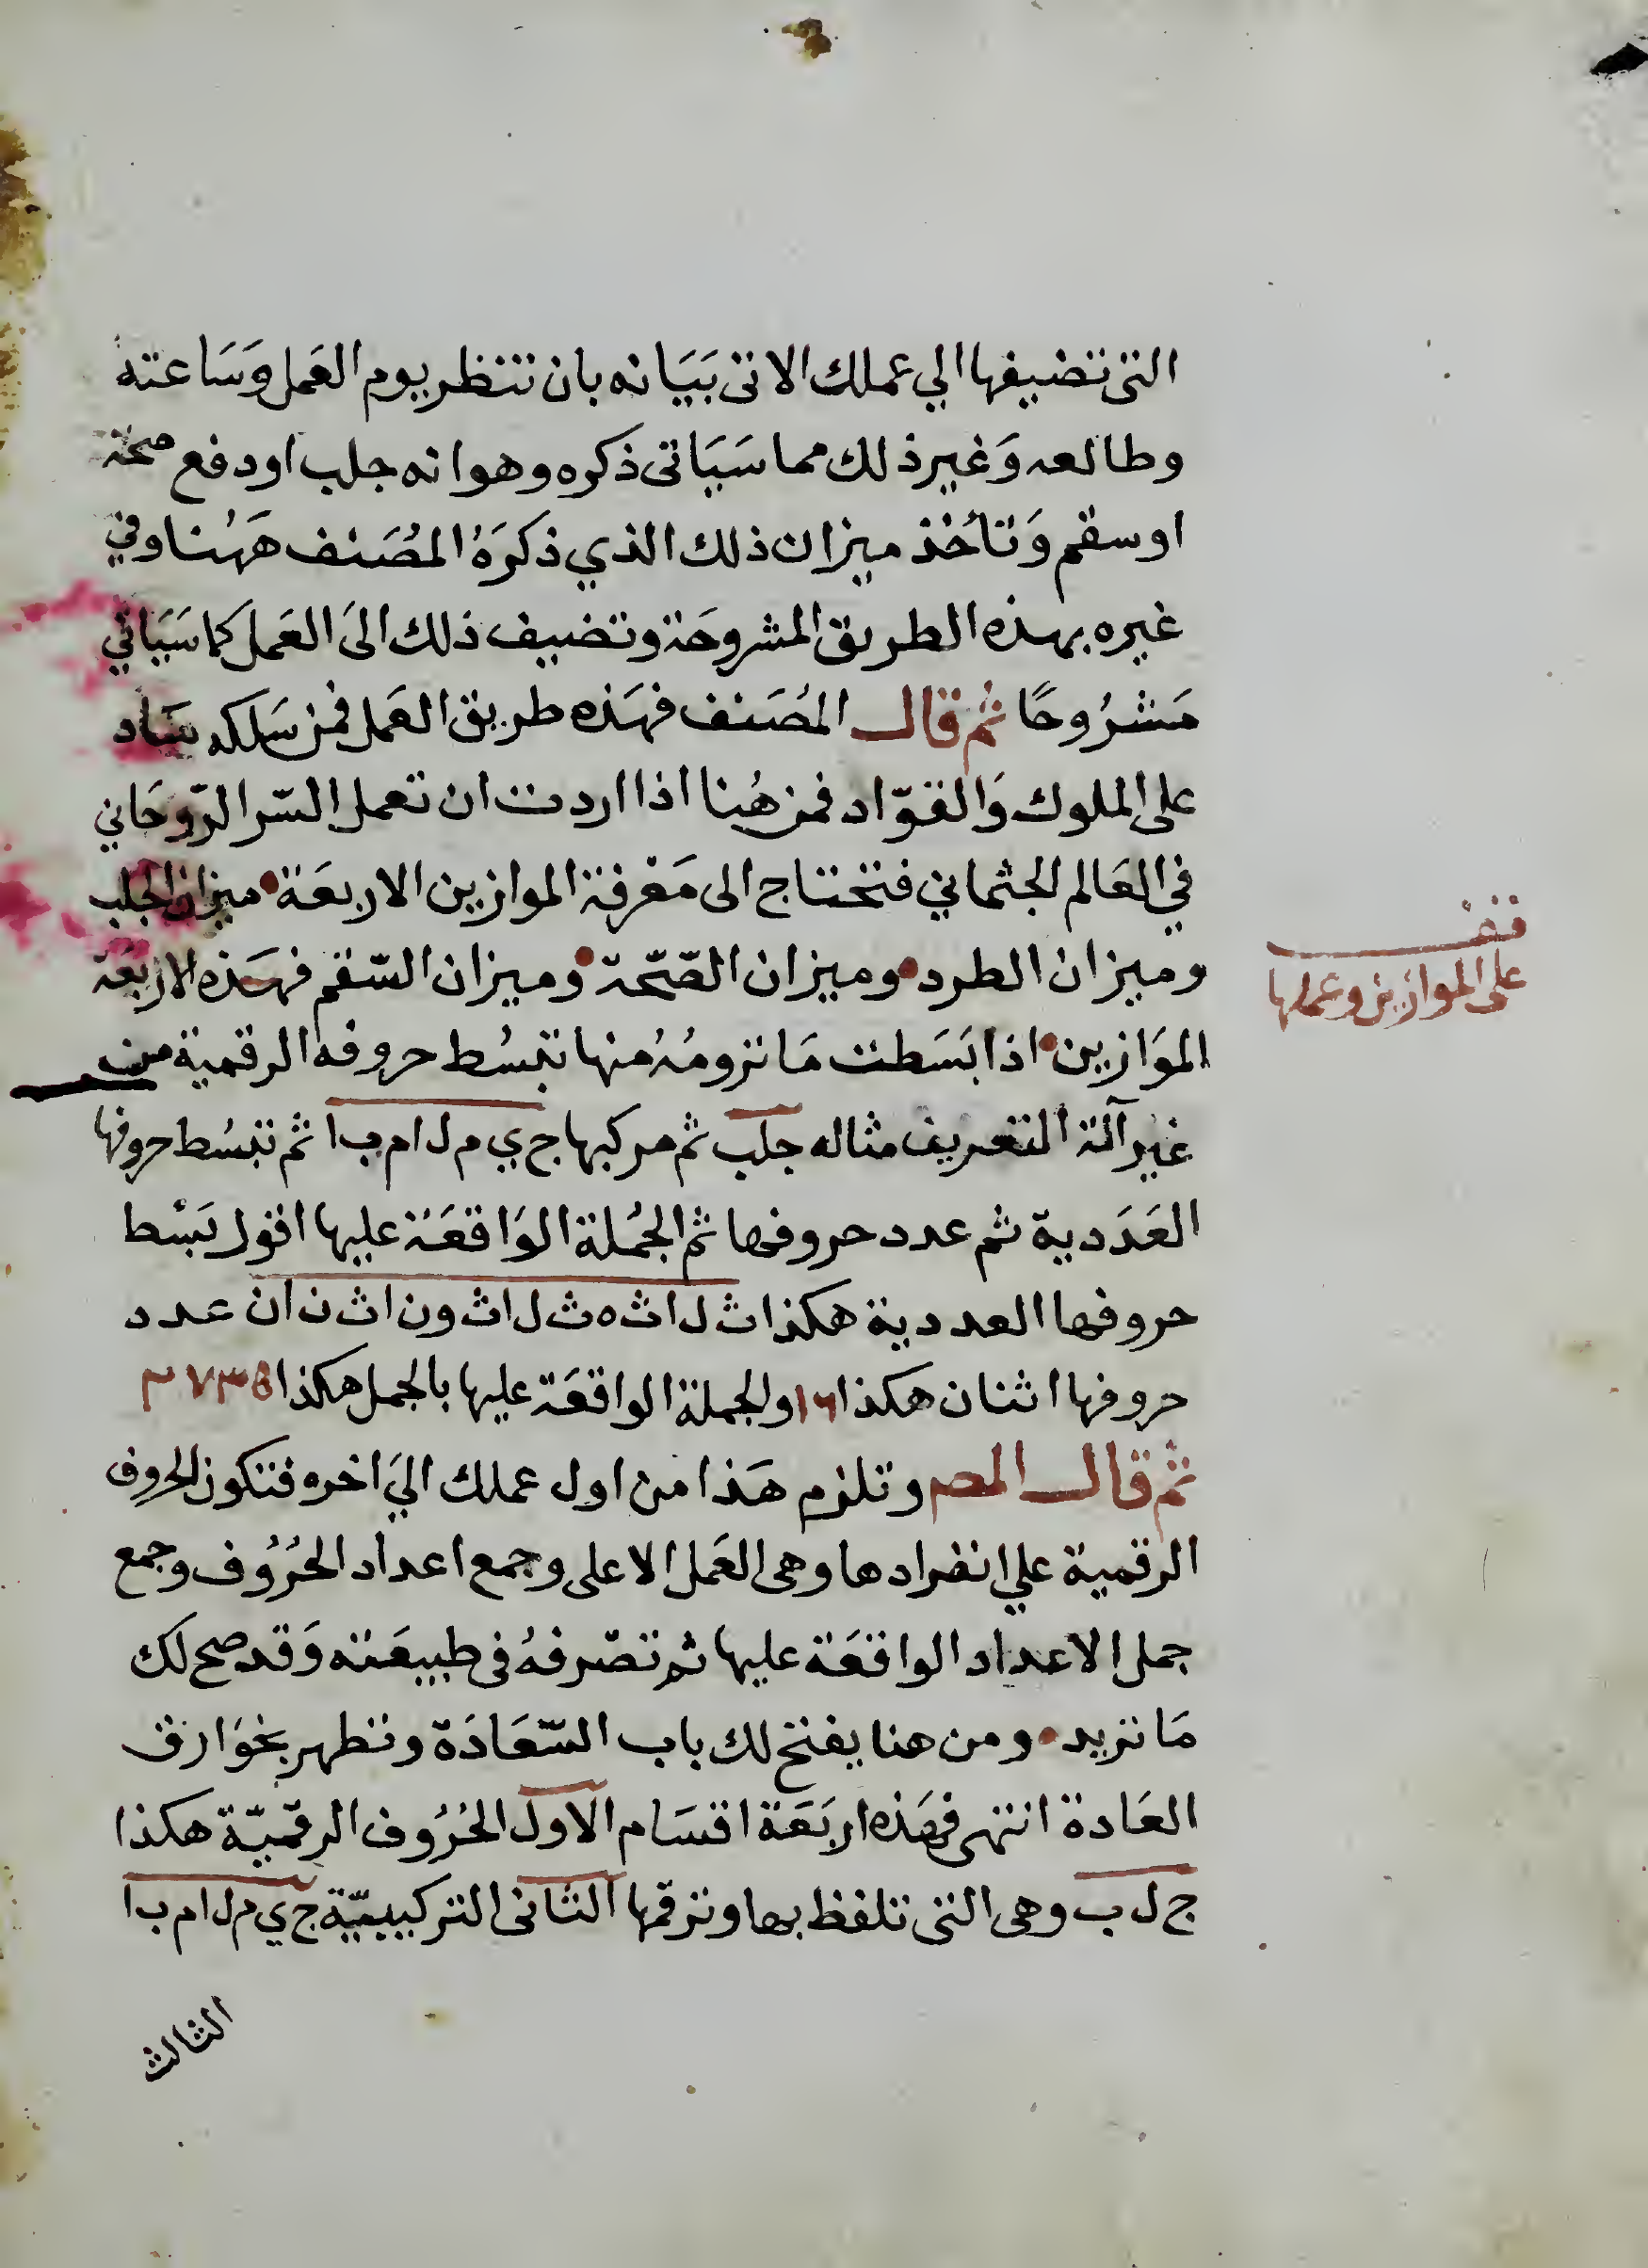 التى تضيفها الي عملك الاتى بَيَانه بان تنظر يوم العَمل وَسَاعته
وطالعه وَغير ذلك مما سَيَاتى ذكره وهو انه جلب او دفع صحة
او سقم وَتاخُذ ميزان ذلك الذي ذكرَهُ المُصَنف هَهُنا وفي
غيره بهذه الطريق المشروحَة وتضيف ذلك الىَ العَمل كما سَيَاتي
مَشرُوحًا ثم قال المُصَنف فهَذه طريق العَمل فمن سَلكه سَاد
على الملوك وَالقوّاد فمن هُنا اذا اردت ان تعمل السّر الرّوحَاني
في العَالم الجثماني فتحتاج الى مَعْرفة الموازين الاربعَة ميزان الجلب
وميزان الطرد وميزان الصّحّة وميزان السّقم فهَذه الاربعَة
الموَازين اذا بَسَطت مَا ترومُهُ منها تبسُط حروفه الرقمية من
غير آلة التعريف مثاله جلب ثم مركبها ج ي م ل ا م ب ا ثم تبسُط حروفها
العَدَدية ثم عدد حروفها ثم الجُملة الوَاقعَة عليها اقول بَسْط
حروفها العددية هكذا ث ل ا ث ه ث ل ا ث و ن ا ث ن ا ن عدد
حروفها اثنان هكذا ١٦ والجملة الواقعَة عليها بالجمل هكذا
ثم قال المصـ وتلزم هَذا من اول عملك اليَ اخره فتكون الحروف
الرقمية علي انفرادها وهى العَمل الاعلى وجمع اعداد الحُرُوف وجمع
جمل الاعداد الواقعَة عليها ثم تصّرفهُ فى طبيعَته وَقد صح لك
مَا تريد ومن هنا يفتح لك باب السّعَادَة وتظهر بخوَارق
العَادة انتهى فهَذه اربَعَة اقسَام الاول الحُرُوف الرقميّة هكذا
ج ل ب وهى التى تلفظ بها وترقمها الثانى التركيبيّة ج ي م ل ا م ب ا
الثالث
قف
على الموازين وعملها